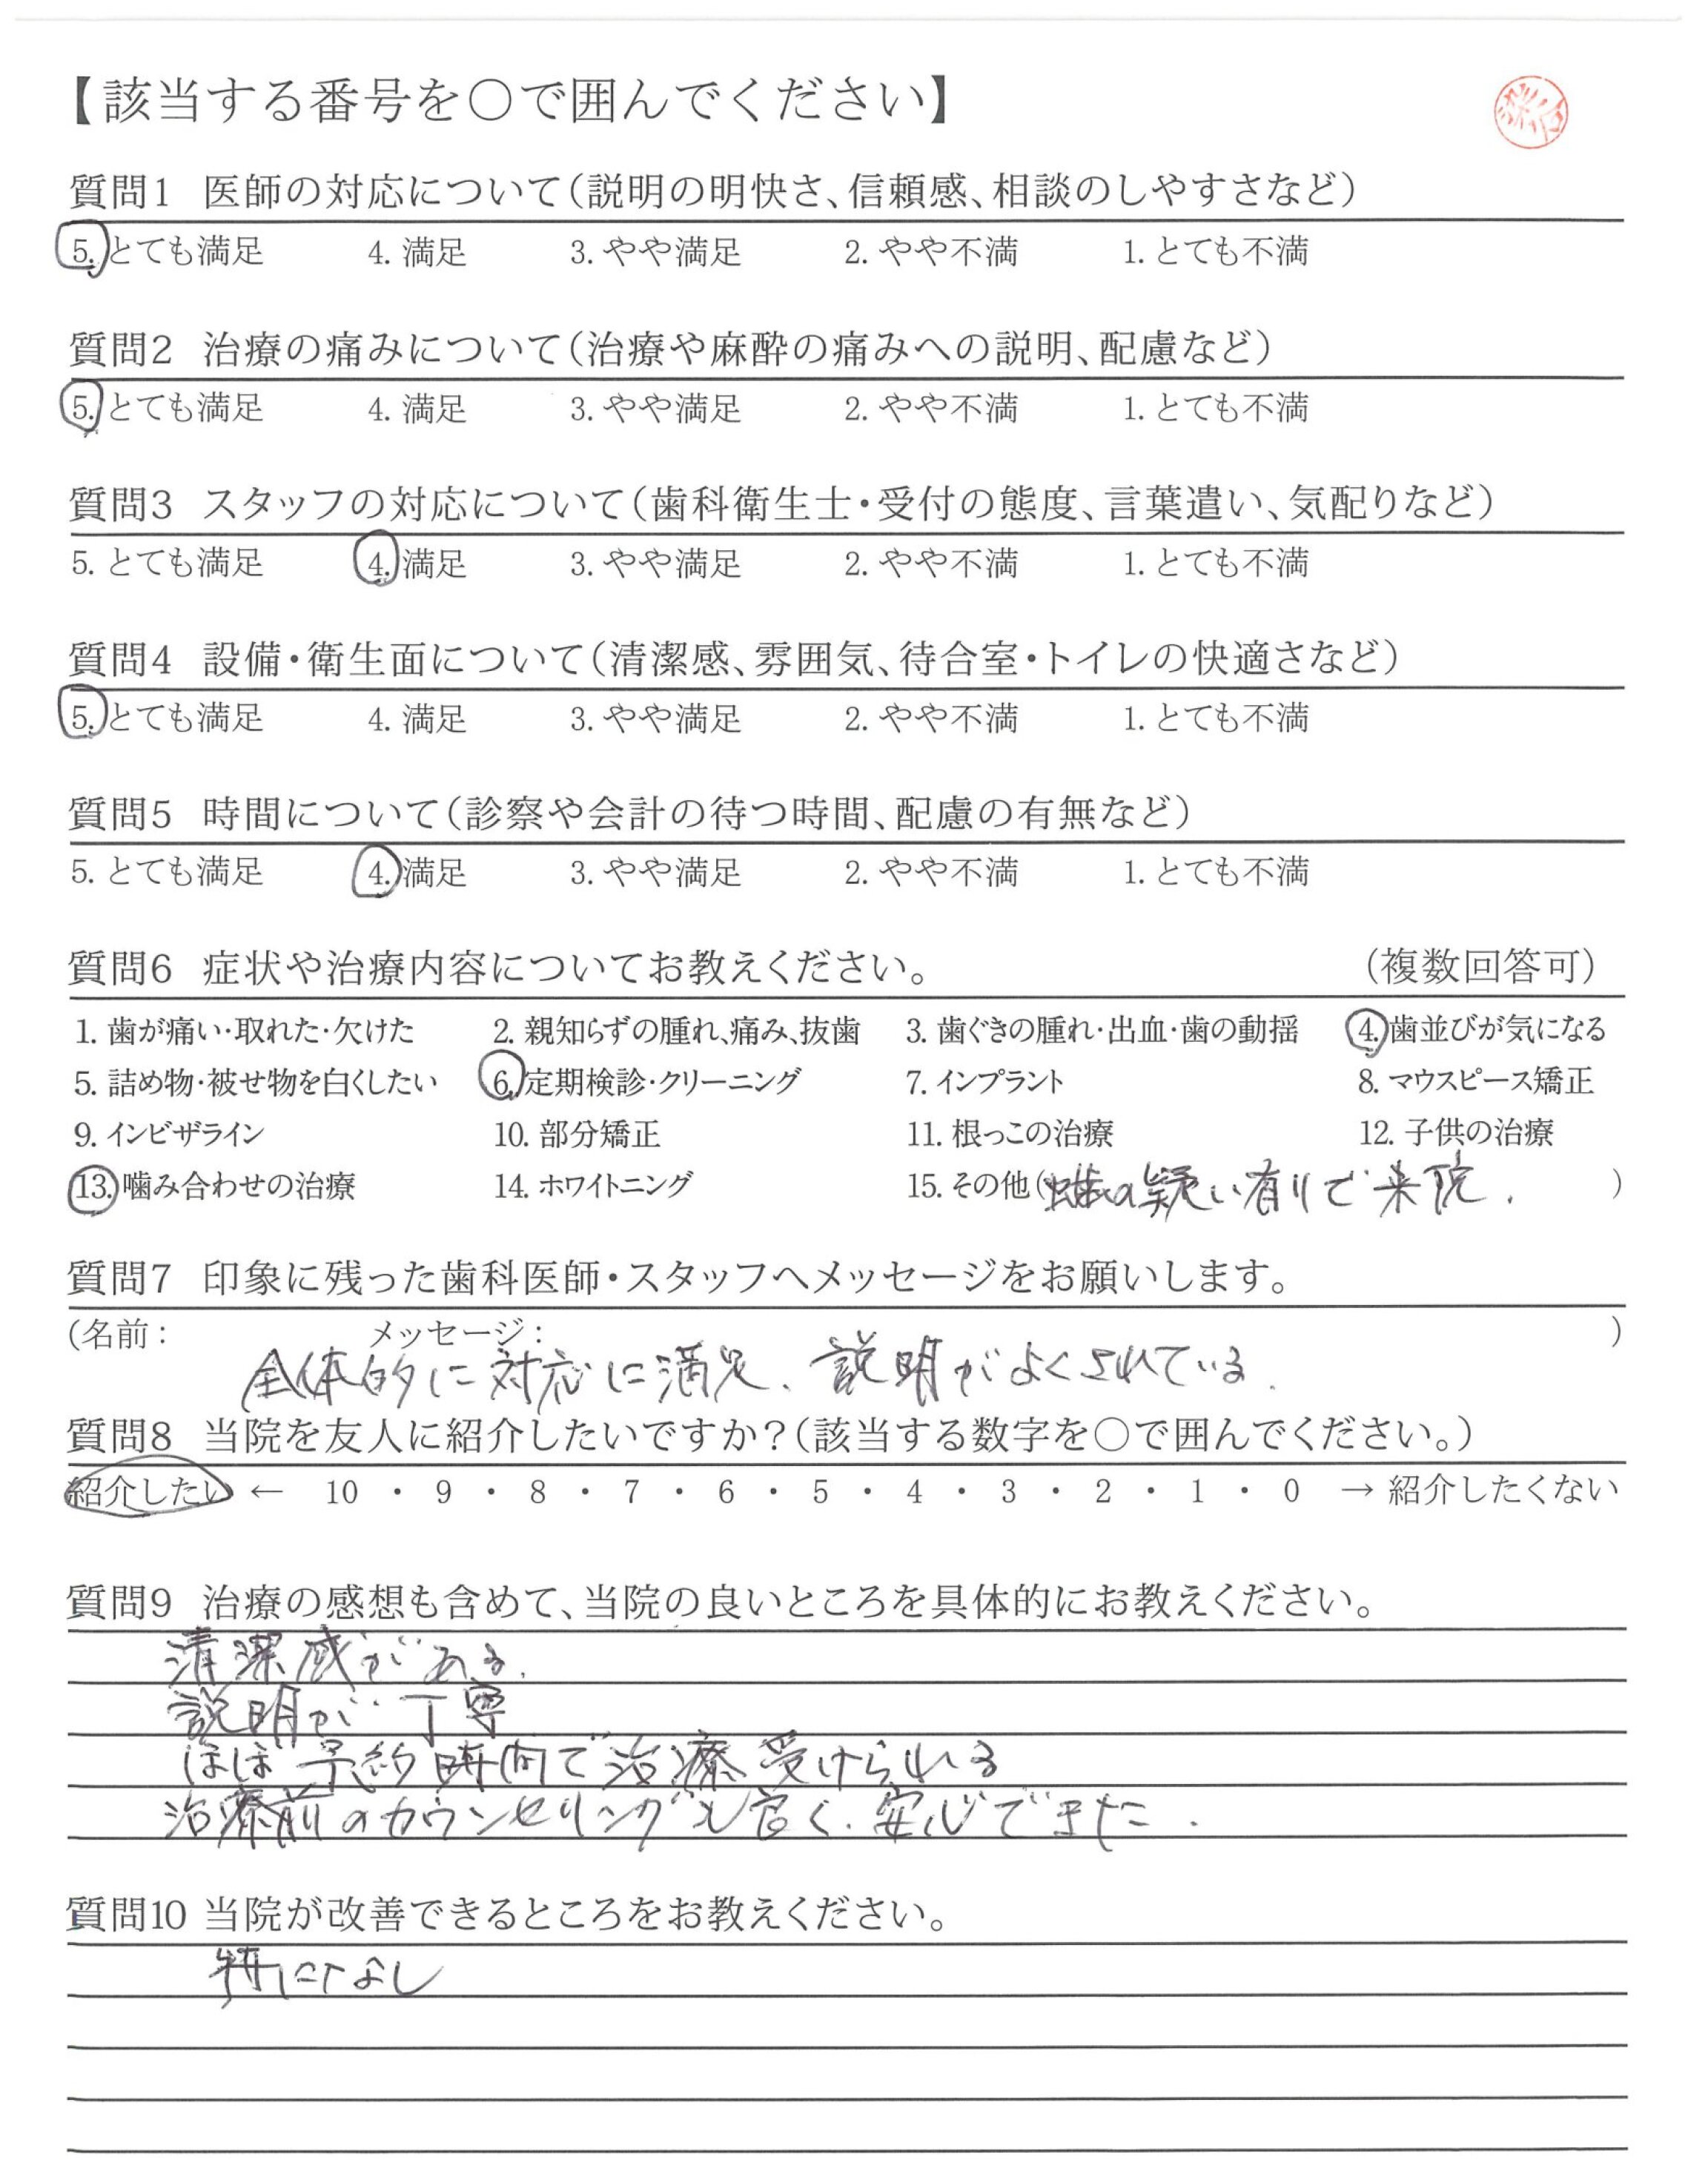 【該当する番号を○で囲んでください】
質問1 医師の対応について(説明の明快さ、信頼感、相談のしやすさなど)
5. とても満足 4. 満足 3. やや満足 2. やや不満 1. とても不満
質問2 治療の痛みについて(治療や麻酔の痛みへの説明、配慮など)
5. とても満足 4. 満足 3. やや満足 2. やや不満 1. とても不満
質問3 スタッフの対応について(歯科衛生士・受付の態度、言葉遣い、気配りなど)
5. とても満足 4. 満足 3. やや満足 2. やや不満 1. とても不満
質問4 設備・衛生面について(清潔感、雰囲気、待合室・トイレの快適さなど)
5. とても満足 4. 満足 3. やや満足 2. やや不満 1. とても不満
質問5 時間について(診察や会計の待つ時間、配慮の有無など)
5. とても満足 4. 満足 3. やや満足 2. やや不満 1. とても不満
質問6 症状や治療内容についてお教えください。 (複数回答可)
1. 歯が痛い・取れた・欠けた 2. 親知らずの腫れ、痛み、抜歯 3. 歯ぐきの腫れ・出血・歯の動揺 4. 歯並びが気になる
5. 詰め物・被せ物を白くしたい 6. 定期検診・クリーニング 7. インプラント 8. マウスピース矯正
9. インビザライン 10. 部分矯正 11. 根っこの治療 12. 子供の治療
13. 噛み合わせの治療 14. ホワイトニング 15. その他(虫歯の疑い有りで来院. )
質問7 印象に残った歯科医師・スタッフへメッセージをお願いします。
(名前: メッセージ: )
全体的に対応に満足、説明がよくされている.
質問8 当院を友人に紹介したいですか?(該当する数字を○で囲んでください。)
紹介したい ← 10 ・ 9 ・ 8 ・ 7 ・ 6 ・ 5 ・ 4 ・ 3 ・ 2 ・ 1 ・ 0 → 紹介したくない
質問9 治療の感想も含めて、当院の良いところを具体的にお教えください。
清潔感がある.
説明が丁寧
ほぼ予約時間で治療受けられる
治療前のカウンセリングも良く、安心できた.
質問10 当院が改善できるところをお教えください。
特になし